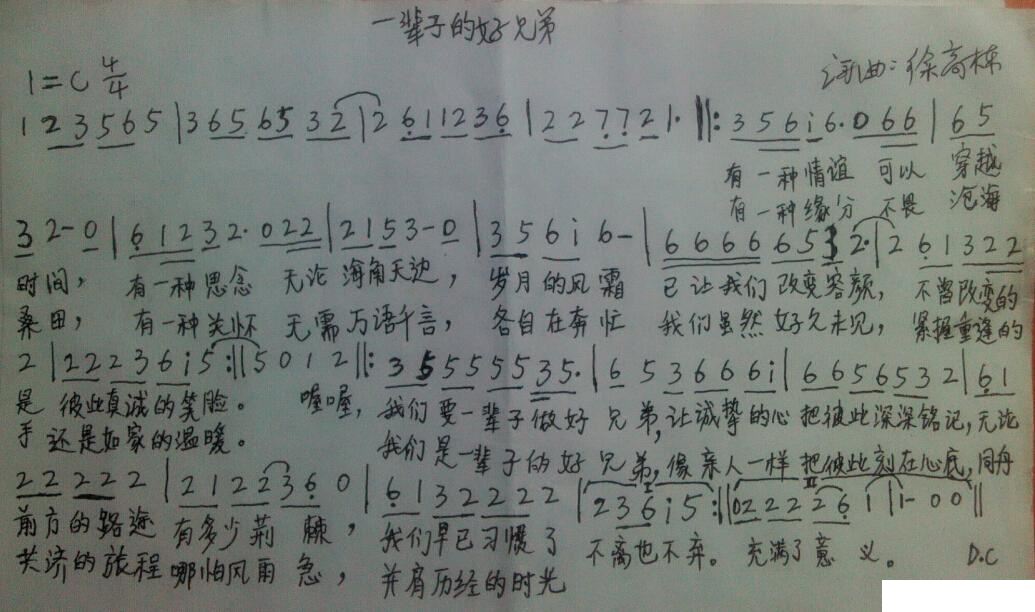 一辈子的好兄弟
1=C 4/4 词曲:徐高栋
1 2 3 5 6 5 | 3 6 5 6 5 3 2 | 2 6 1 1 2 3 6 | 2 2 7 7 2 1· ‖: 3 5 6 i 6· 0 6 6 | 6 5
有一种情谊 可以 穿越
有一种缘分 不畏 沧海
3 2 - 0 | 6 1 2 3 2· 0 2 2 | 2 1 5 3 - 0 | 3 5 6 i 6 - | 6 6 6 6 6 5 3 2· | 2 6 1 3 2 2
时间, 有一种思念 无论 海角天边, 岁月的风霜 已让我们改变容颜, 不曾改变的
桑田, 有一种关怀 无需 万语千言, 各自在奔忙 我们虽然好久未见, 紧握重逢的
2 | 2 2 2 3 6 i 5 :‖ 5 0 1 2 ‖: 3 5 5 5 5 5 3 5· | 6 5 3 6 6 6 i | 6 6 5 6 5 3 2 | 6 1
是 彼此真诚的笑脸。 喔喔, 我们要一辈子做好兄弟,让诚挚的心把彼此深深铭记,无论
手 还是如家的温暖。 我们是一辈子的好兄弟,像亲人一样把彼此刻在心底,同舟
2 2 2 2 2 | 2 1 2 2 3 6 0 | 6 1 3 2 2 2 2 | I 2 3 6 i 5 :‖ II 0 2 2 2 2 6 1 | 1 - 0 0 ‖
前方的路途 有多少荆棘, 我们早已习惯了 不离也不弃。 充满了意义。 D.C
共济的旅程 哪怕风雨急, 并肩历经的时光